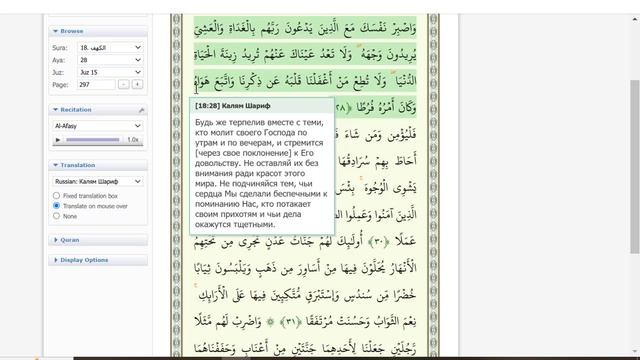 Browse
Sura: 18. الكهف
Aya: 28
Juz: Juz 15
Page: 297
Recitation
Al-Afasy
1.0x
Translation
Russian: Калям Шариф
Fixed translation box
Translate on mouse over
None
Quran
Display Options
وَاصْبِرْ نَفْسَكَ مَعَ الَّذِينَ يَدْعُونَ رَبَّهُم بِالْغَدَاةِ وَالْعَشِيِّ
يُرِيدُونَ وَجْهَهُ ۖ وَلَا تَعْدُ عَيْنَاكَ عَنْهُمْ تُرِيدُ زِينَةَ الْحَيَاةِ
الدُّنْيَا ۖ وَلَا تُطِعْ مَنْ أَغْفَلْنَا قَلْبَهُ عَن ذِكْرِنَا وَاتَّبَعَ هَوَاهُ
وَكَانَ أَمْرُهُ فُرُطًا ﴿٢٨﴾
[18:28] Калям Шариф
Будь же терпелив вместе с теми,
кто молит своего Господа по
утрам и по вечерам, и стремится
[через свое поклонение] к Его
довольству. Не оставляй их без
внимания ради красот этого
мира. Не подчиняйся тем, чьи
сердца Мы сделали беспечными к
поминанию Нас, кто потакает
своим прихотям и чьи дела
окажутся тщетными.
فَلْيُؤْمِن وَمَن شَاءَ
أَحَاطَ بِهِمْ سُرَادِقُهَا
يَشْوِي الْوُجُوهَ ۚ بِئْسَ
الَّذِينَ آمَنُوا وَعَمِلُوا
عَمَلًا ﴿٣٠﴾ أُولَٰئِكَ لَهُمْ جَنَّاتُ عَدْنٍ تَجْرِي مِن تَحْتِهِمُ
الْأَنْهَارُ يُحَلَّوْنَ فِيهَا مِنْ أَسَاوِرَ مِن ذَهَبٍ وَيَلْبَسُونَ ثِيَابًا
خُضْرًا مِّن سُندُسٍ وَإِسْتَبْرَقٍ مُّتَّكِئِينَ فِيهَا عَلَى الْأَرَائِكِ ۚ
نِعْمَ الثَّوَابُ وَحَسُنَتْ مُرْتَفَقًا ﴿٣١﴾ ۞ وَاضْرِبْ لَهُم مَّثَلًا
رَّجُلَيْنِ جَعَلْنَا لِأَحَدِهِمَا جَنَّتَيْنِ مِنْ أَعْنَابٍ وَحَفَفْنَاهُمَا